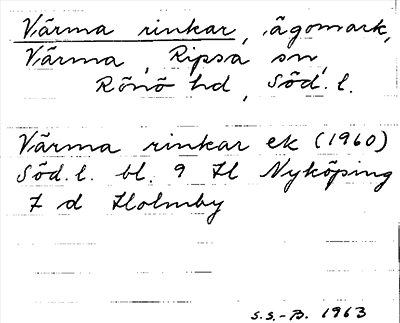 Värma rinkar, ägomark,
Värma, Ripsa sn,
Rönö hd, Söd. l.
Värma rinkar ek (1960)
Söd. l. bl. 9 H Nyköping
7 d Holmby
S.S.-B. 1963